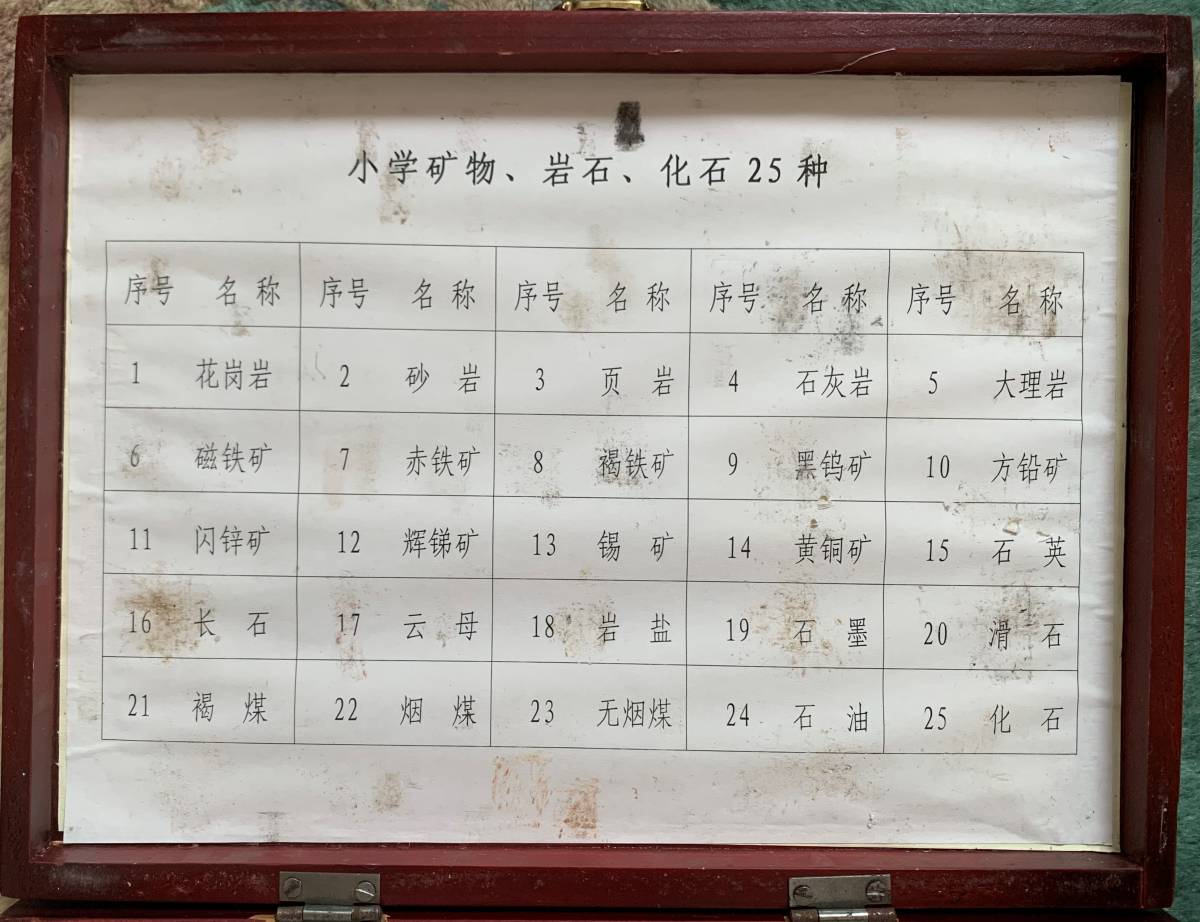 小学矿物、岩石、化石25种
序号 名称 序号 名称 序号 名称 序号 名称 序号 名称
1 花岗岩 2 砂岩 3 页岩 4 石灰岩 5 大理岩
6 磁铁矿 7 赤铁矿 8 褐铁矿 9 黑钨矿 10 方铅矿
11 闪锌矿 12 辉锑矿 13 锡矿 14 黄铜矿 15 石英
16 长石 17 云母 18 岩盐 19 石墨 20 滑石
21 褐煤 22 烟煤 23 无烟煤 24 石油 25 化石